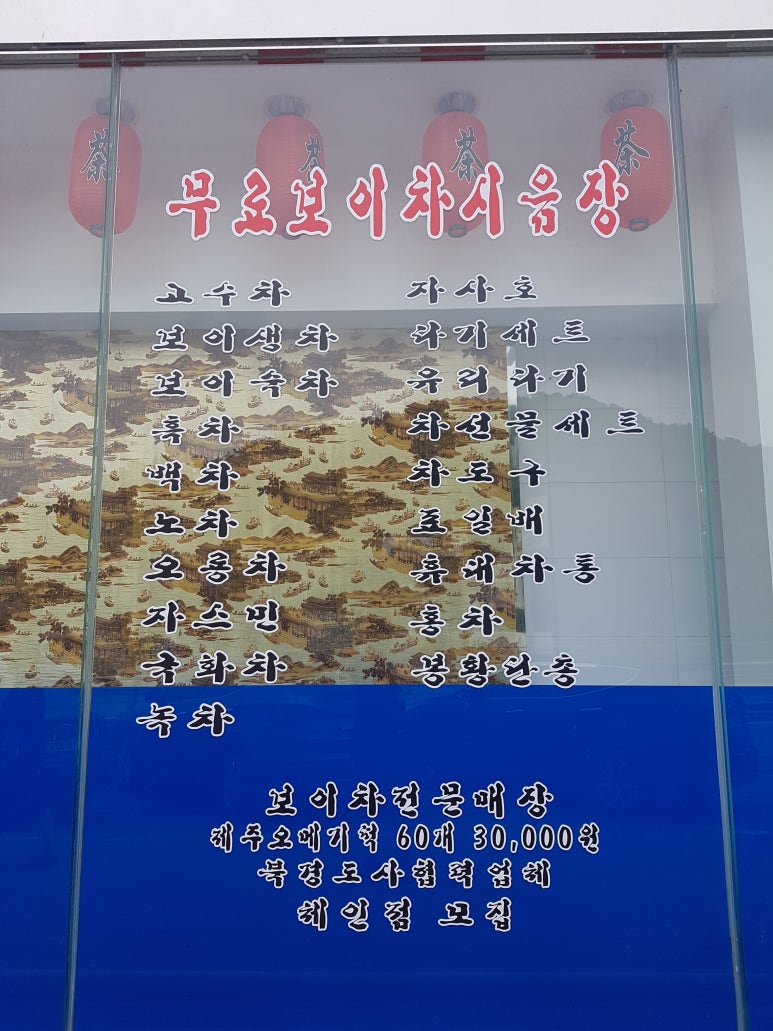 茶 茶 茶 茶
무료보이차시음장
고수차
보이생차
보이숙차
흑차
백차
노차
오룡차
자스민
국화차
녹차
자사호
다기세트
유리다기
차선물세트
차도구
표일배
휴대차통
홍차
봉황단총
보이차전문매장
제주오메기떡 60개 30,000원
북경도사협력업체
체인점 모집